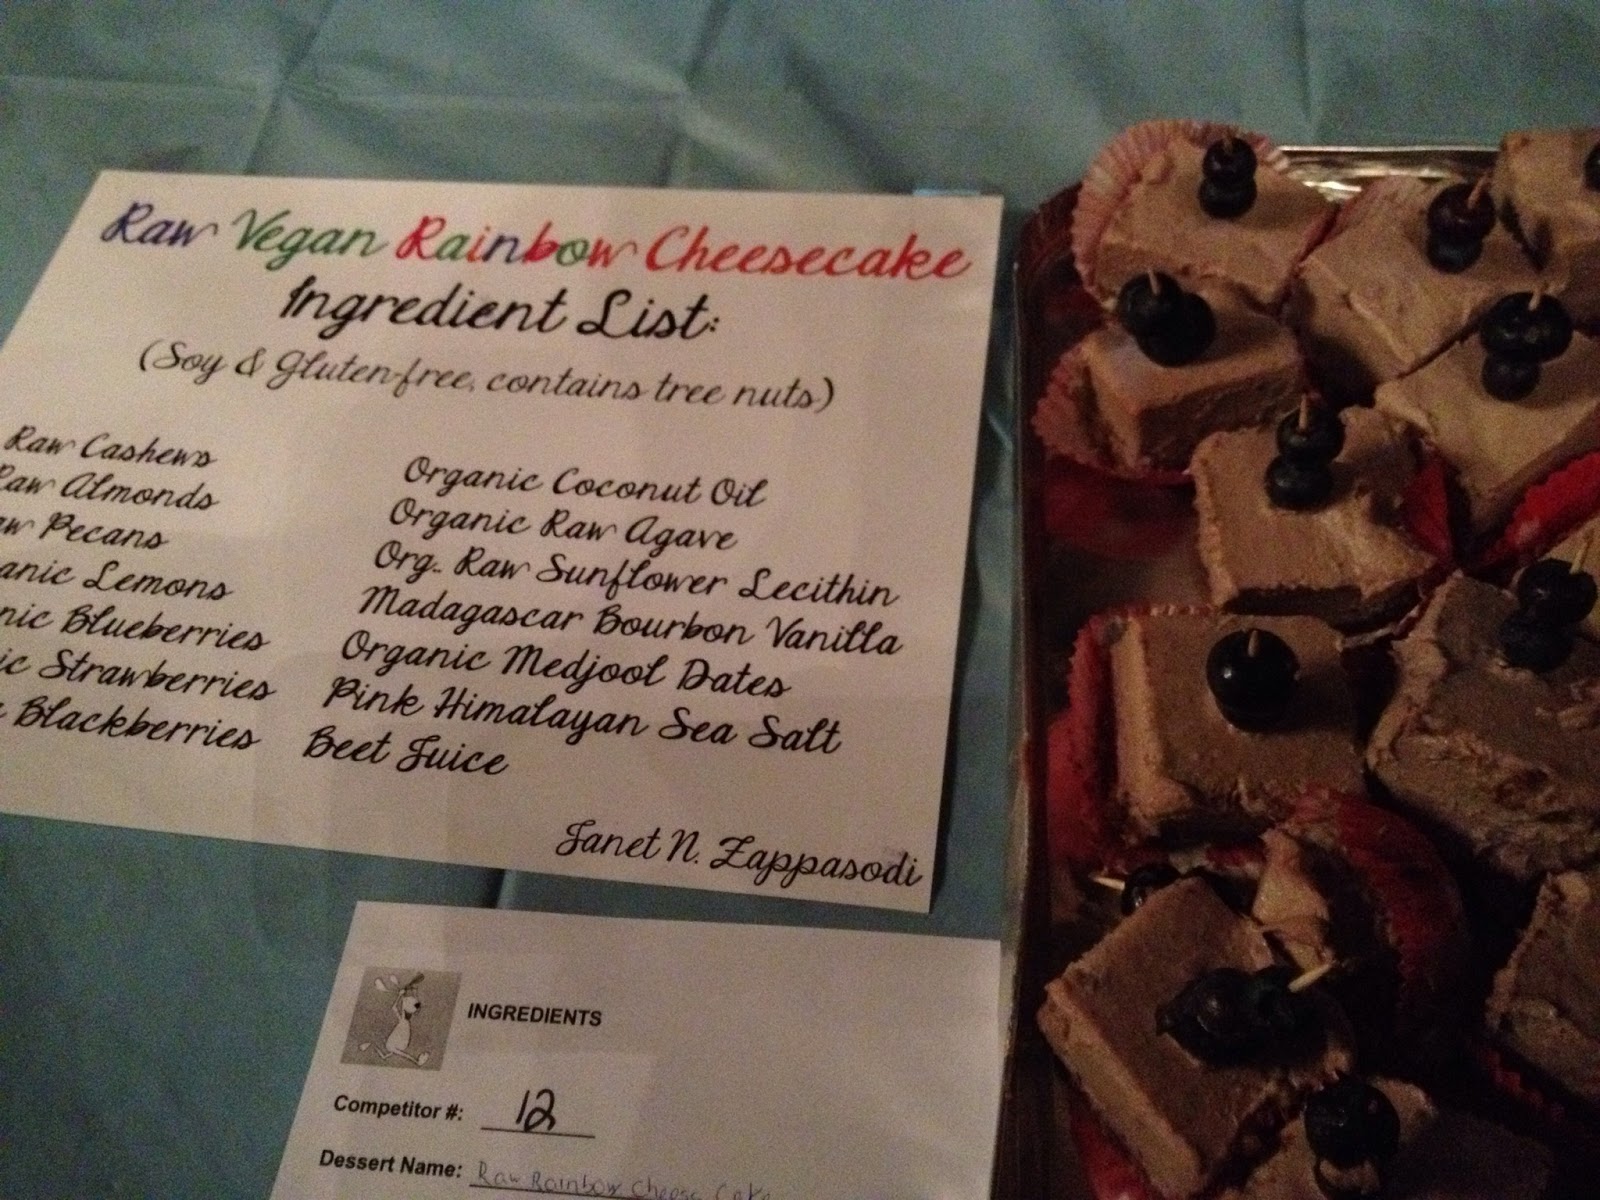 Raw Vegan Rainbow Cheesecake
Ingredient List:
(Soy & Gluten-free, contains tree nuts)
Raw Cashews
Raw Almonds
aw Pecans
anic Lemons
nic Blueberries
ic Strawberries
Blackberries
Organic Coconut Oil
Organic Raw Agave
Org. Raw Sunflower Lecithin
Madagascar Bourbon Vanilla
Organic Medjool Dates
Pink Himalayan Sea Salt
Beet Juice
Janet N. Zappasodi
INGREDIENTS
Competitor #: 12
Dessert Name: Raw Rainbow Cheese Cake